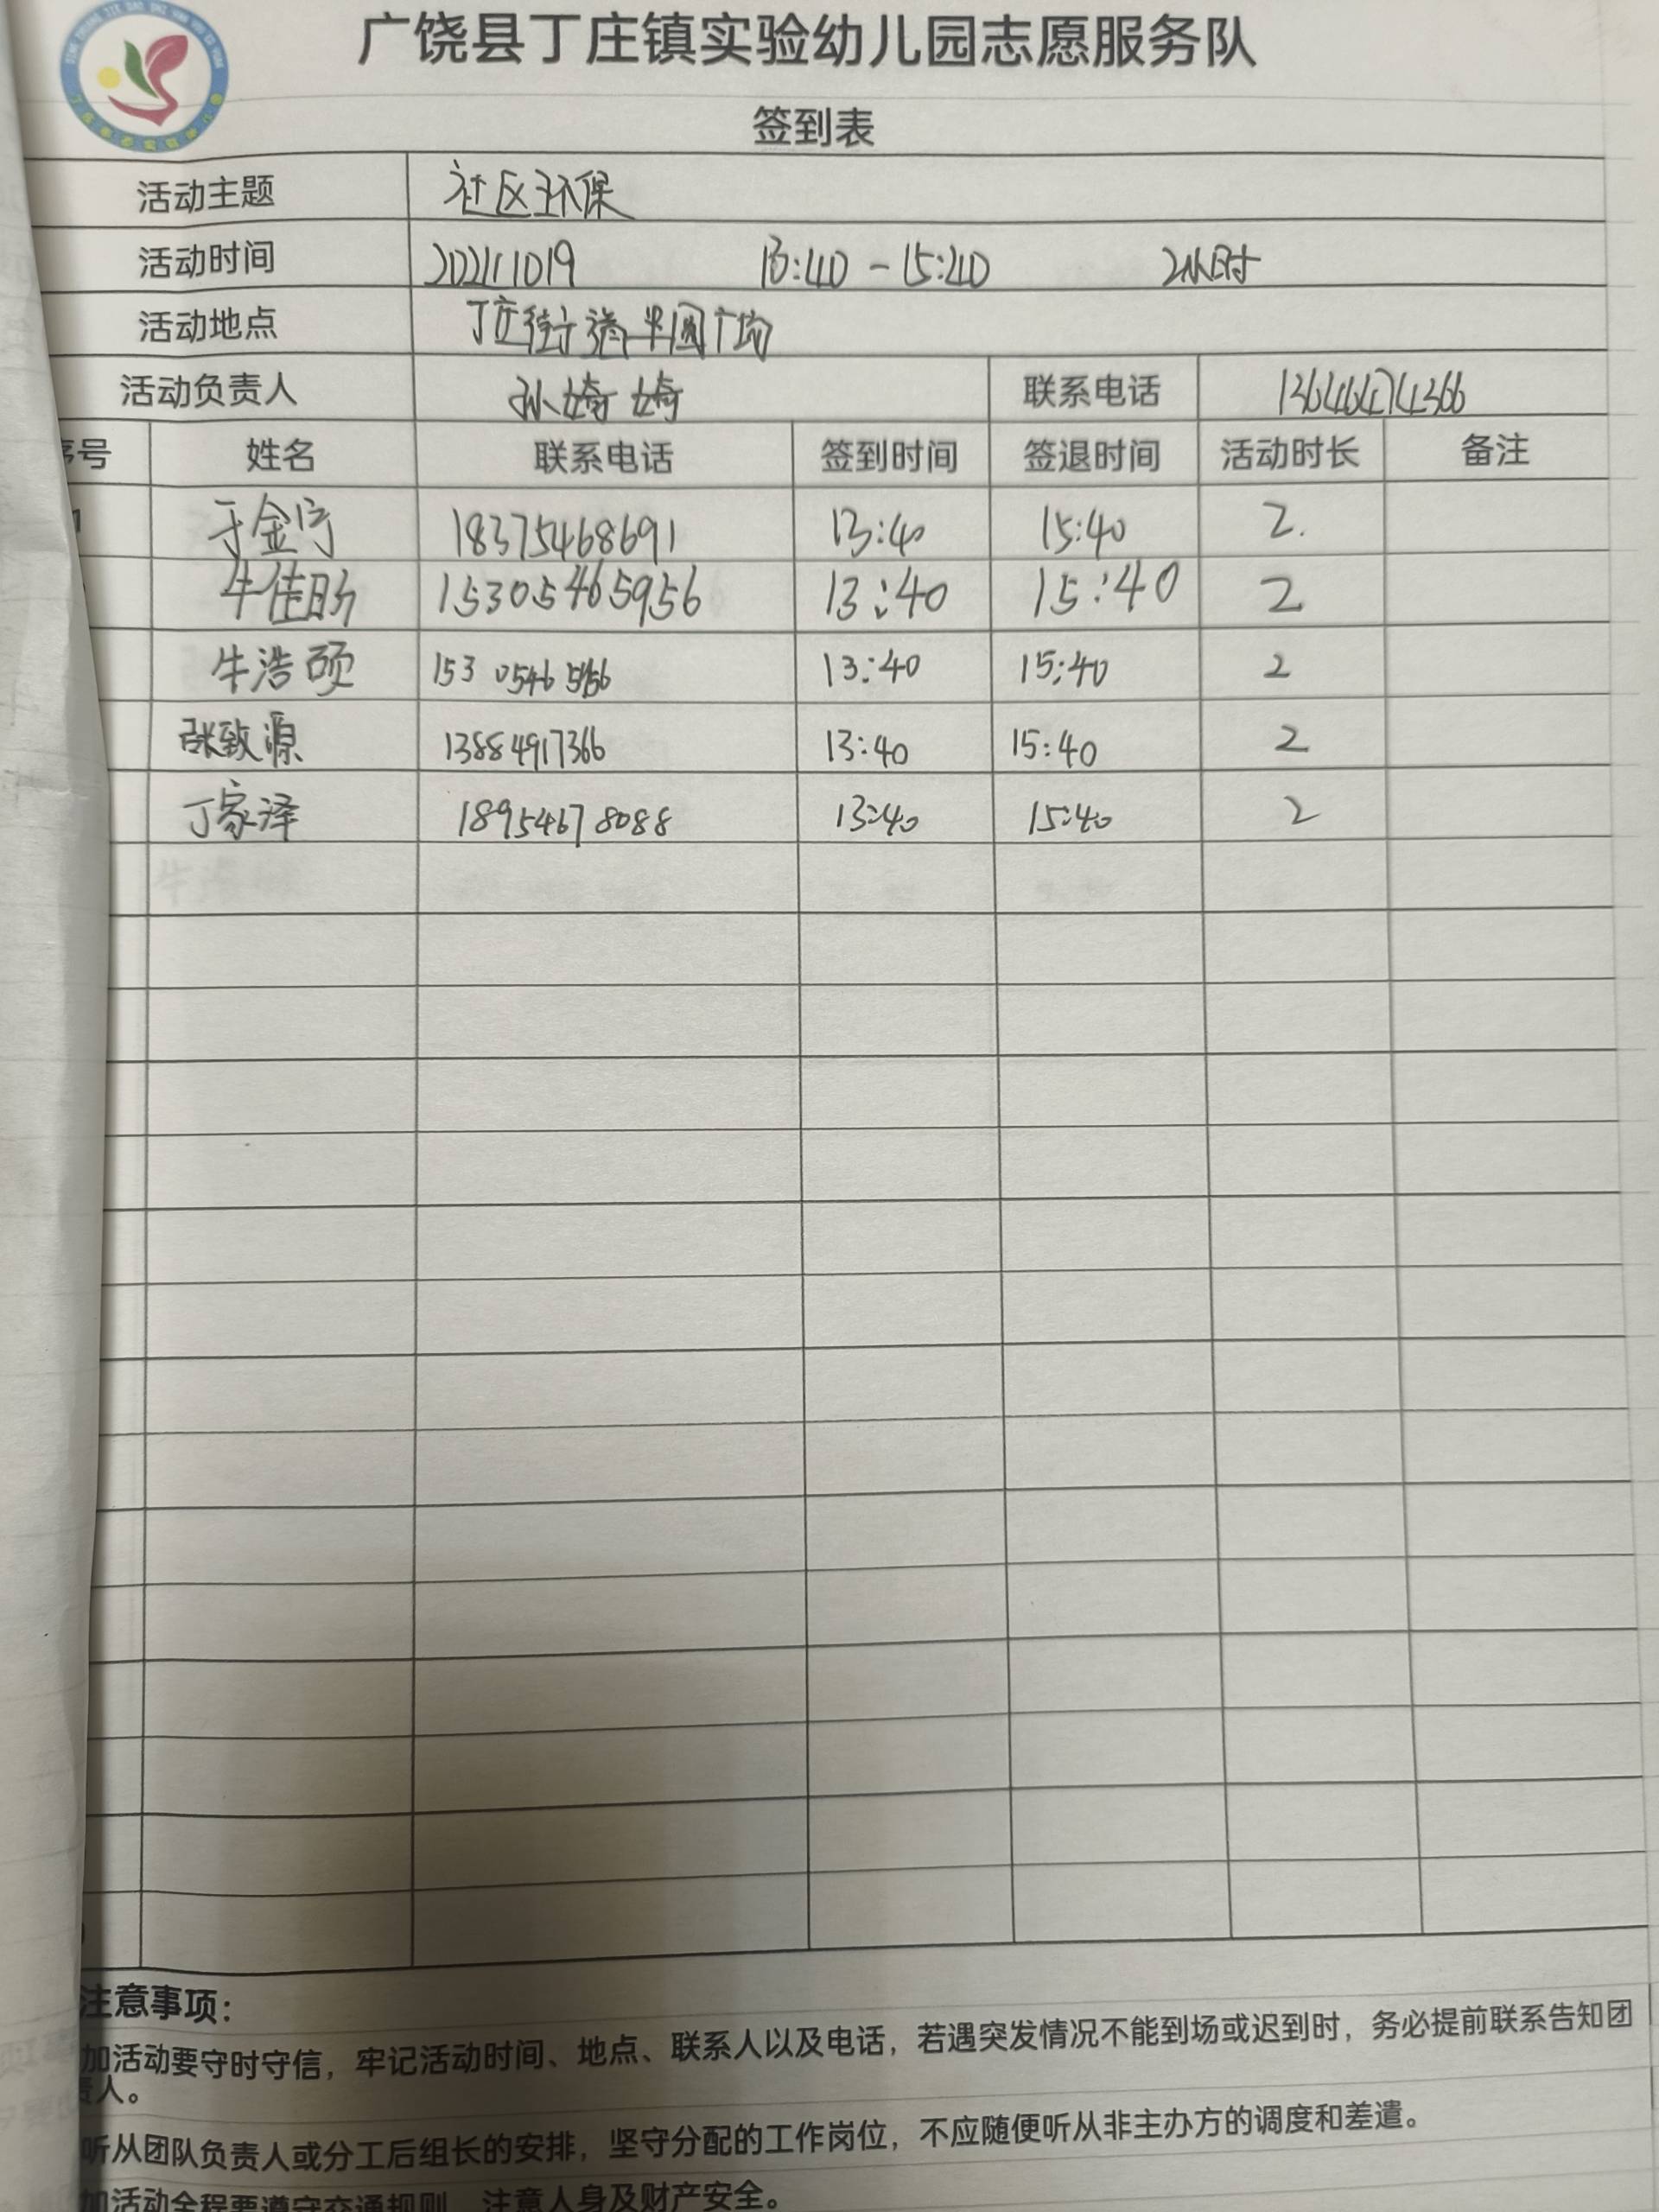 广饶县丁庄镇实验幼儿园志愿服务队
签到表
活动主题 社区环保
活动时间 20221019 13:40-15:40 2小时
活动地点 丁庄街道半圆广场
活动负责人 孙婍婍 联系电话 13646474366
序号 姓名 联系电话 签到时间 签退时间 活动时长 备注
1 于金宁 18375468691 13:40 15:40 2.
牛佳盼 15305465956 13:40 15:40 2
牛浩硕 153 0546 13:40 15:40 2
张致源 13884917366 13:40 15:40 2
丁家泽 18954678088 13:40 15:40 2
注意事项：
加活动要守时守信，牢记活动时间、地点、联系人以及电话，若遇突发情况不能到场或迟到时，务必提前联系告知团
责人。
听从团队负责人或分工后组长的安排，坚守分配的工作岗位，不应随便听从非主办方的调度和差遣。
加活动全程要遵守交通规则，注意人身及财产安全。